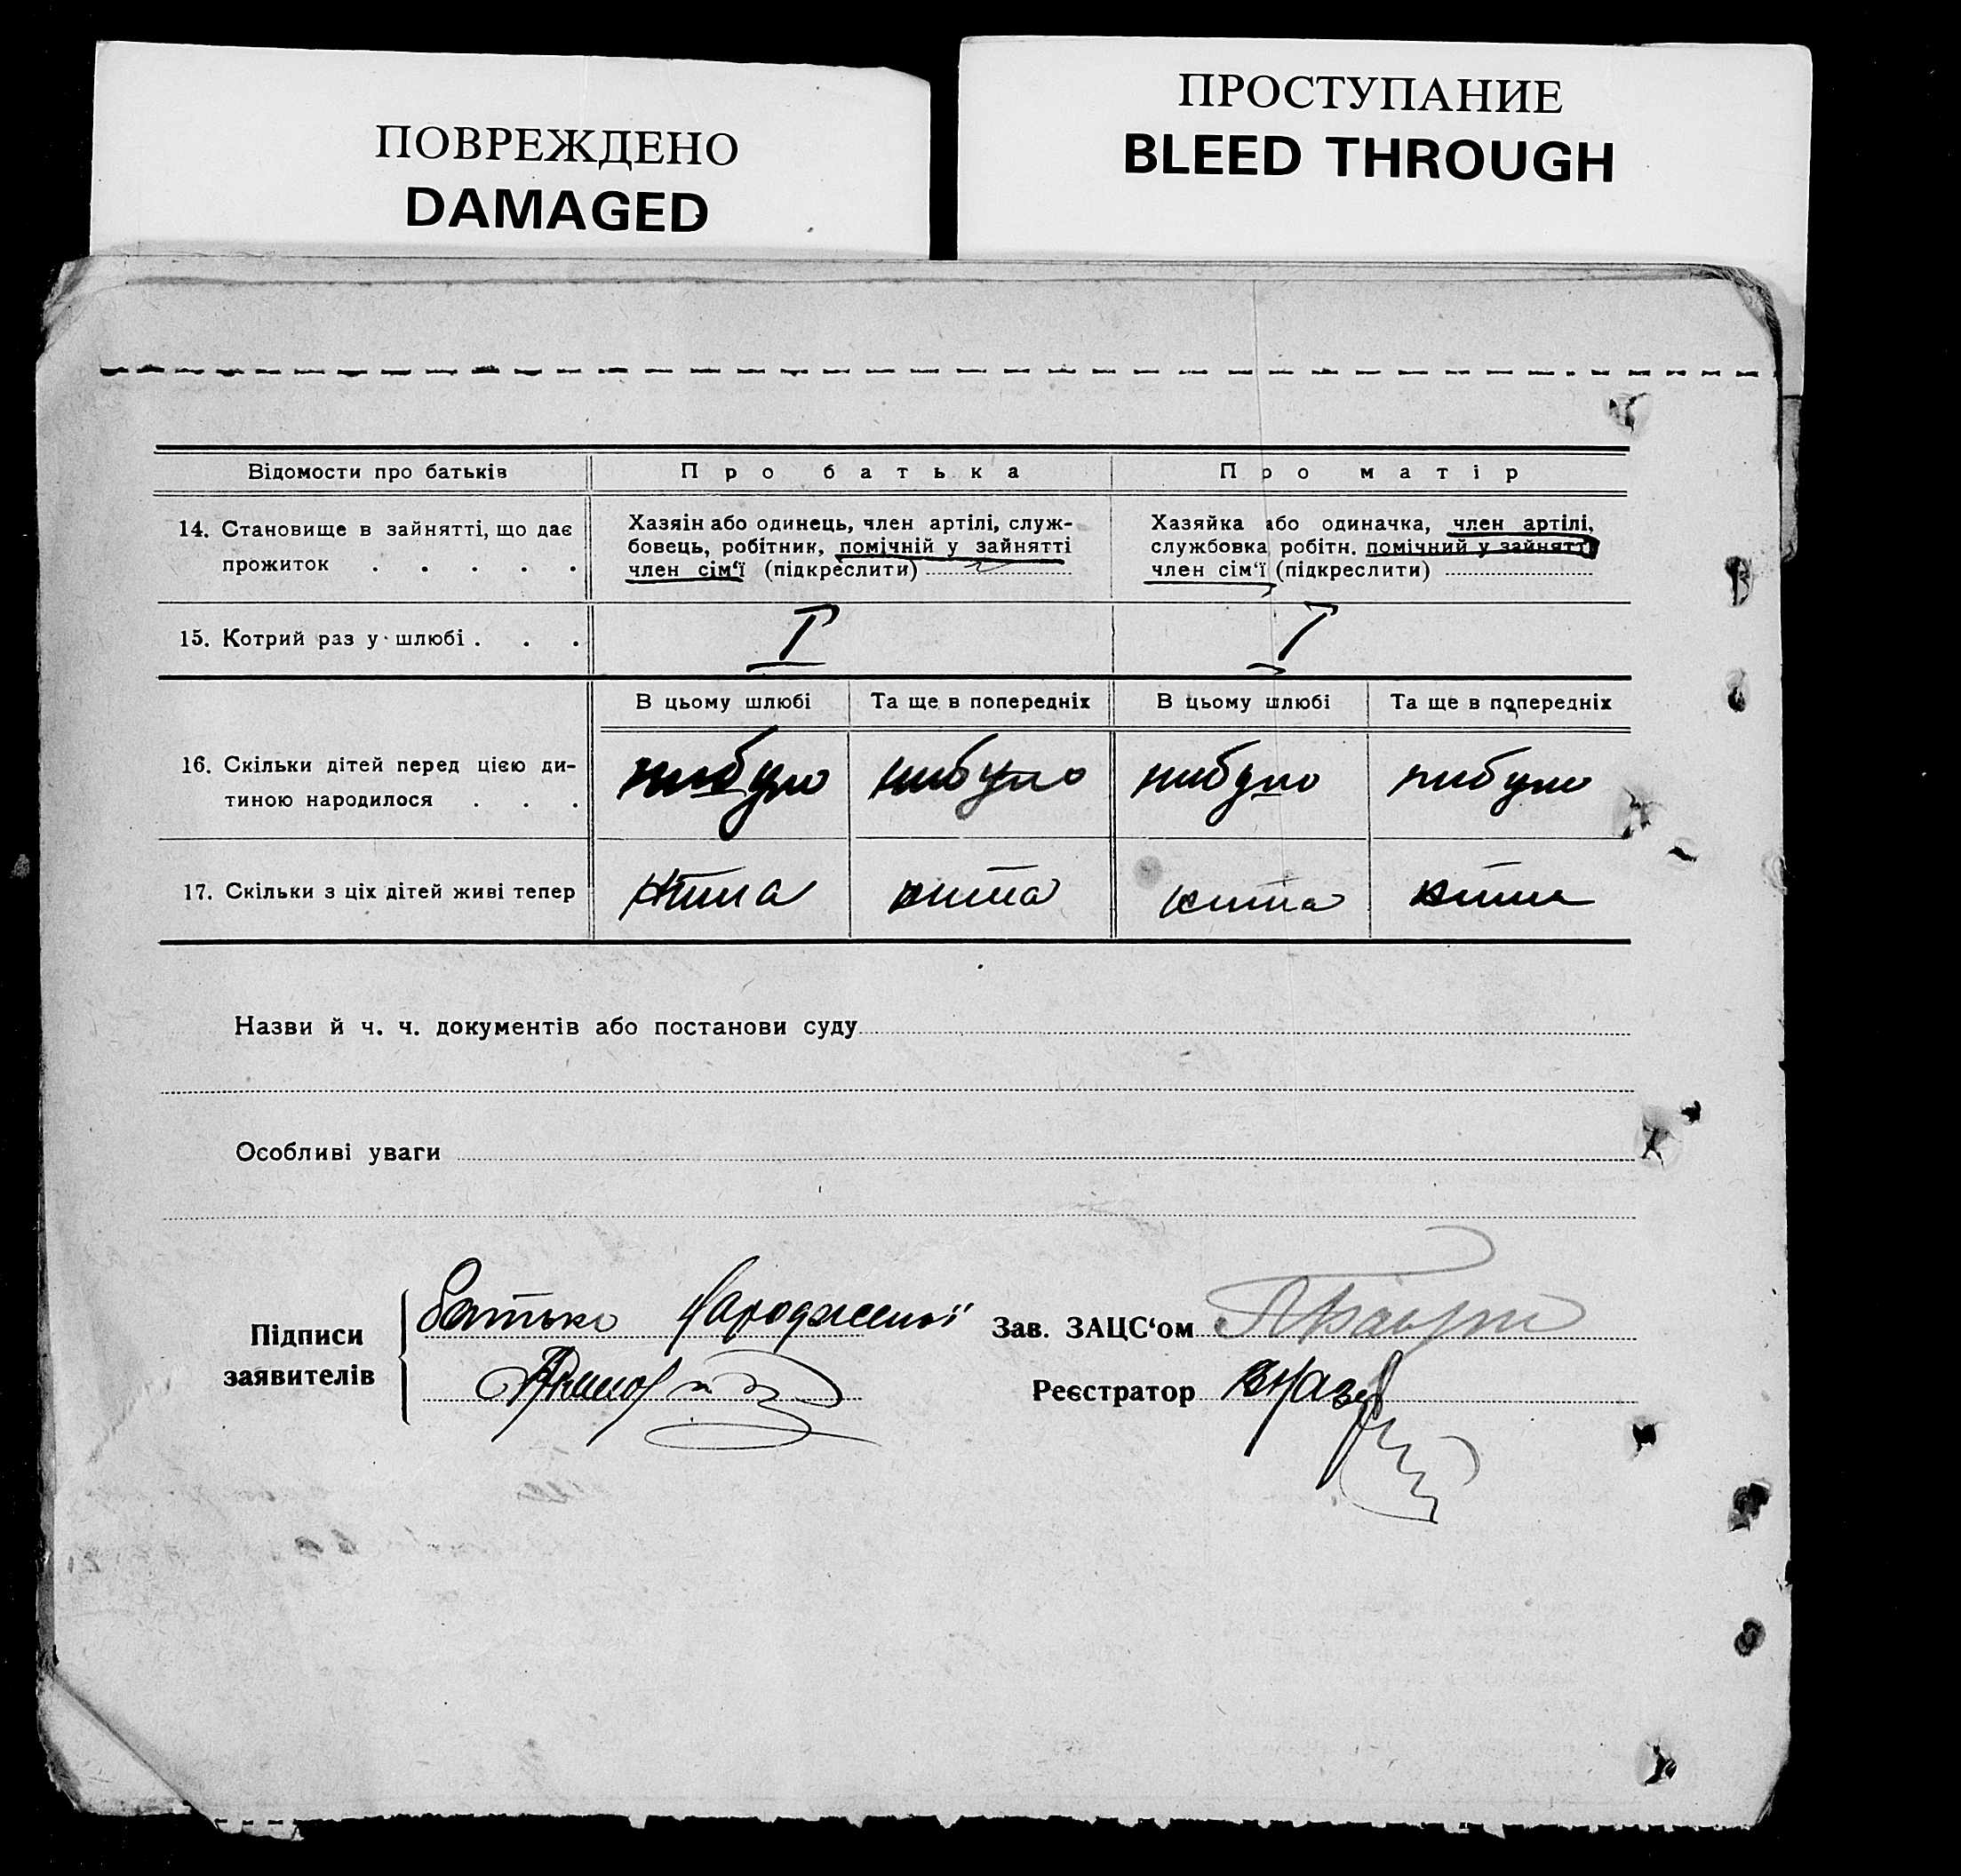 ПОВРЕЖДЕНО
DAMAGED
ПРОСТУПАНИЕ
BLEED THROUGH
Відомости про батьків Про батька Про матір
14. Становище в зайнятті, що дає прожиток . . . . .
Хазяін або одинець, член артілі, служ-
бовець, робітник, помічній у зайнятті
член сім‘ї (підкреслити)
Хазяйка або одиначка, член артілі,
службовка робітн. помічний у зайнятті
член сім‘ї (підкреслити)
15. Котрий раз у шлюбі . . . I I
В цьому шлюбі Та ще в попередніх В цьому шлюбі Та ще в попередніх
16. Скільки дітей перед цією ди-
тиною народилося . . . нибуло нибуло нибуло нибуло
17. Скільки з ціх дітей живі тепер нима нима нима нима
Назви й ч. ч. документів або постанови суду
Особливі уваги
Підписи
заявителів
Батько народженої
Зав. ЗАЦС‘ом
Реєстратор